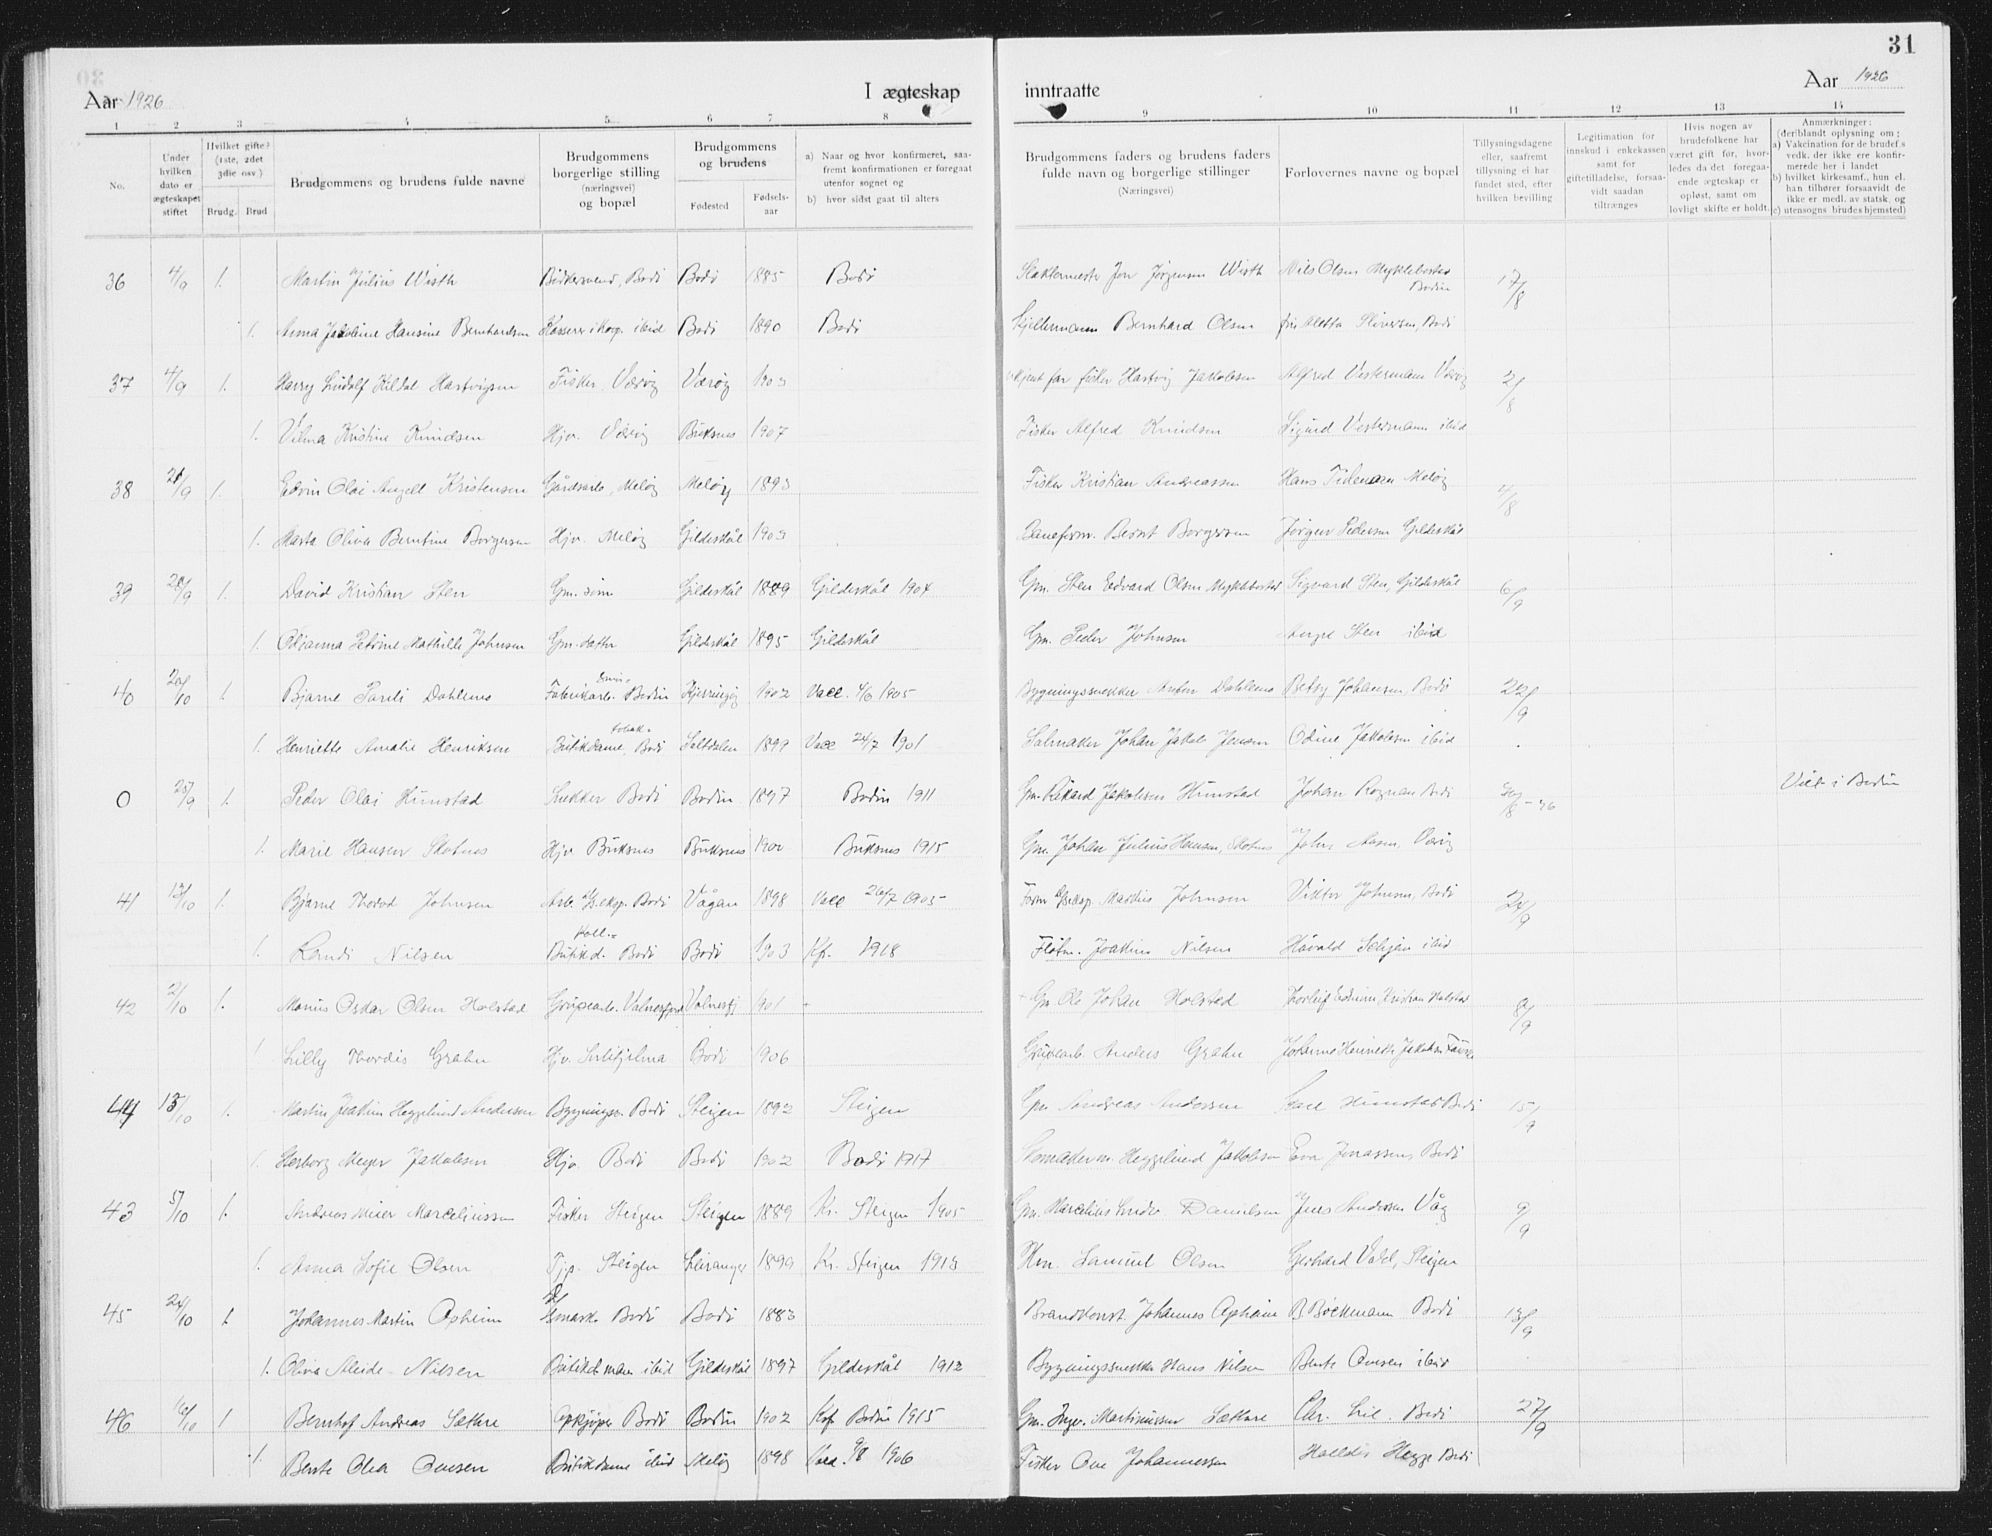 31
Aar 1926 I ægteskap inntraatte Aar 1926
1 2 3 4 5 6 7 8 9 10 11 12 13 14
No.
Under hvilken dato er ægteskapet stiftet
Hvilket gifte? (1ste, 2det 3die osv.)
Brudg. Brud
Brudgommens og brudens fulde navne
Brudgommens borgerlige stilling (næringsvei) og bopæl
Brudgommens og brudens
Fødested Fødselsaar
a) Naar og hvor konfirmeret, saafremt konfirmationen er foregaat utenfor sognet og
b) hvor sidst gaat til alters
Brudgommens faders og brudens faders fulde navn og borgerlige stillinger (Næringsvei)
Forlovernes navne og bopæl
Tillysningsdagene eller, saafremt tillysning ei har fundet sted, efter hvilken bevilling
Legitimation for innskud i enkekassen samt for giftetilladelse, forsaavidt saadan tiltrænges
Hvis nogen av brudefolkene har været gift før, hvorledes da det foregaaende ægteskap er opløst, samt om lovligt skifte er holdt.
Anmærkninger: (deriblandt oplysning om;
a) Vakcination for de brudef.s vedk. der ikke ere konfirmerede her i landet
b) hvilket kirkesamf., hun el. han tilhører forsaavidt de ikke er medl. av statsk. og
c) utensogns brudes hjemsted)
36 4/9 1. Martin Julius Wisth Bødkersvend, Bodø Bodø 1885 Bodø Jon Jørgensen Wisth Nils Olsen Myklebostad Bodin 17/8
1. Anna Jakobine Hansine Bernhardsen ibid Bodø 1890 Bodø Bernhard Olsen Bodø
37 4/9 1. Harry Ludolf Kildal Hartvigsen Fisker, Værøy Værøy 1903 far fisker Hartvig Jakobsen Alfred Vestermann Værøy 2/8
1. Vilma Kristine Knudsen Hjv. Værøy Buksnes 1907 Fisker Alfred Knudsen Sigurd Vestermann ibid
38 21/9 1. Edvin Olai Angell Kristensen Gårdsarb., Meløy Meløy 1893 Fisker Kristian Andreassen Hans Tidemann Meløy
1. Marta Oliva Berntine Borgersen Hjv. Meløy Gildeskål 1903 Baneform. Bernt Borgersen Jørgen Pedersen Gildeskål
39 20/9 1. David Kristian Sten Gm. sønn Gildeskål 1889 Gildeskål 1904 Gm. Sten Edvard Olsen Myklebostad Sigvard Sten, Gildeskål 6/9
1. Odianna Petrine Mathilde Johnsen Gm. datter Gildeskål 1895 Gildeskål Gm. Peder Johnsen Sten ibid
40 20/10 1. Bjarne Pauli Dahlmo Fabrikarb. Bodin Kjerringøy 1902 Vacc. 4/6 1905 Bygningssnekker Anton Dahlmo Betsy Johansen, Bodø 22/9
1. Henriette Amalie Henriksen Butikdame, Bodø Saltdalen 1899 Vacc 24/7 1901 Salmaker Johan Jakob Jensen Odine Jakobsen ibid
0 25/9 1. Peder Olai Hunstad Snekker Bodø Bodin 1897 Bodin 1911 Gm. Rikard Jakobsen Hunstad Johan Rognan Bodø Viet i Bodin
1. Marie Hansen Skotnes Hjv Buksnes Buksnes 1900 Buksnes 1915 Gm. Johan Julius Hansen, Skotnes
41 13/10 1. Bjarne Thorod Johnsen Bodø Vågan 1898 Vacc 26/7 1905 Markus Johnsen Viktor Johnsen, Bodø 24/9
1. Randi Nilsen Butikd. Bodø Bodø 1903 Kf. 1918 Joakim Nilsen Håvald ibid
42 2/10 1. Marius Oskar Olsen Holstad Valnesfjord Valnesfj 1901 Gm Ole Johan Holstad Kristian Holstad 8/9
1 Lilly Thordis Grahn Hjv. Sulitjelma Bodø 1906 Anders Grahn Johanne Henriette Jakobsen Fauske
44 13/10 1. Martin Joakim Heggelund Andersen Bygnings. Bodø Steigen 1892 Steigen Gm Andreas Andersen Hunstad Bodø 15/9
1. Herborg Meyer Jakobsen Hjv. Bodø Bodø 1902 Bodø 1917 Heggelund Jakobsen Eva Jonassen, Bodø
43 5/10 1. Andreas Meier Marceliussen Fisker Steigen Steigen 1889 Kr. Steigen 1905 Gm. Marcelius Danielsen Jens Andersen Våg 9/9
1. Anna Sofie Olsen Tjp. Steigen Leiranger 1899 Kr. Steigen 1913 Samuel Olsen Gerhard Steigen
45 24/10 1 Johannes Martin Opheim Bodø Bodø 1883 Brandkonst. Johannes Opheim B. Bøckmann Bodø 13/9
1. Oliva Aleide Nilsen ibid Gildeskål 1897 Gildeskål 1912 Bygningssnekker Hans Nilsen Bente Ovesen ibid
46 10/10 1 Bernhof Andreas Sætare Opkjøper Bodø Bodin 1902 Kof Bodin 1915 Gm. Martinussen Sætare Chr. Lie. Bodø 27/9
1. Bente Olea Ovesen Butikdame ibid Meløy 1898 Vacc. 9/8 1906 Fisker Ove Johannessen Halldis Hegge Bodø